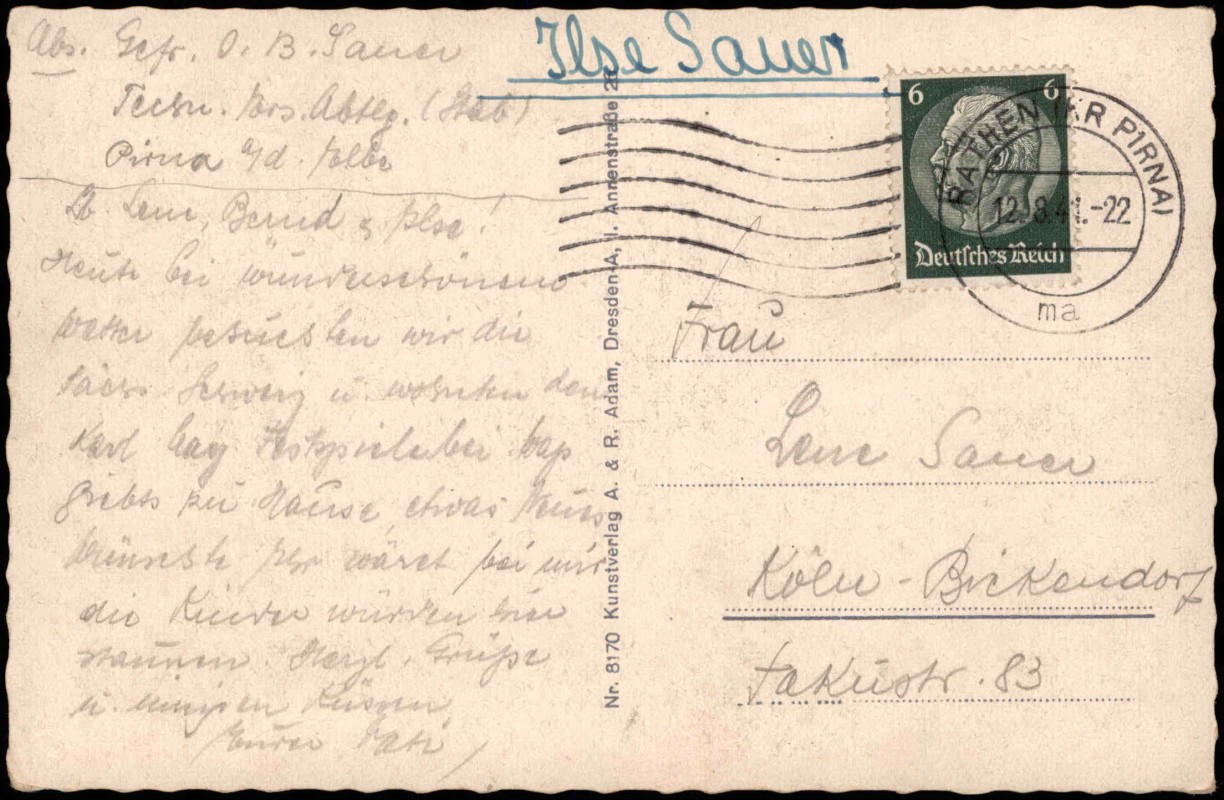 Abs. Gefr. O. B. Sauer
Techn. Vors. Abtlg. (Stab)
Pirna a/d. Elbe
Lb. Lene, Bernd u. Ilse!
Heute bei wunderschönem
Wetter besuchten wir die
Sächs. Schweiz u. wohnten den
Karl May Festspielen bei. Was
giebts zu Hause etwas Neues
Wünschte Ihr wäret bei mir
die Kinder würden hier
staunen. Herzl. Grüße
u. innigen Küssen
Eurer Vati
Nr. 8170 Kunstverlag A. & R. Adam, Dresden-A., I. Annenstraße 2
Ilse Sauer
6 6
Deutsches Reich
RATHEN (KR PIRNA)
12.8.41.-22
ma
Frau
Lene Sauer
Köln-Bickendorf
Takustr. 83